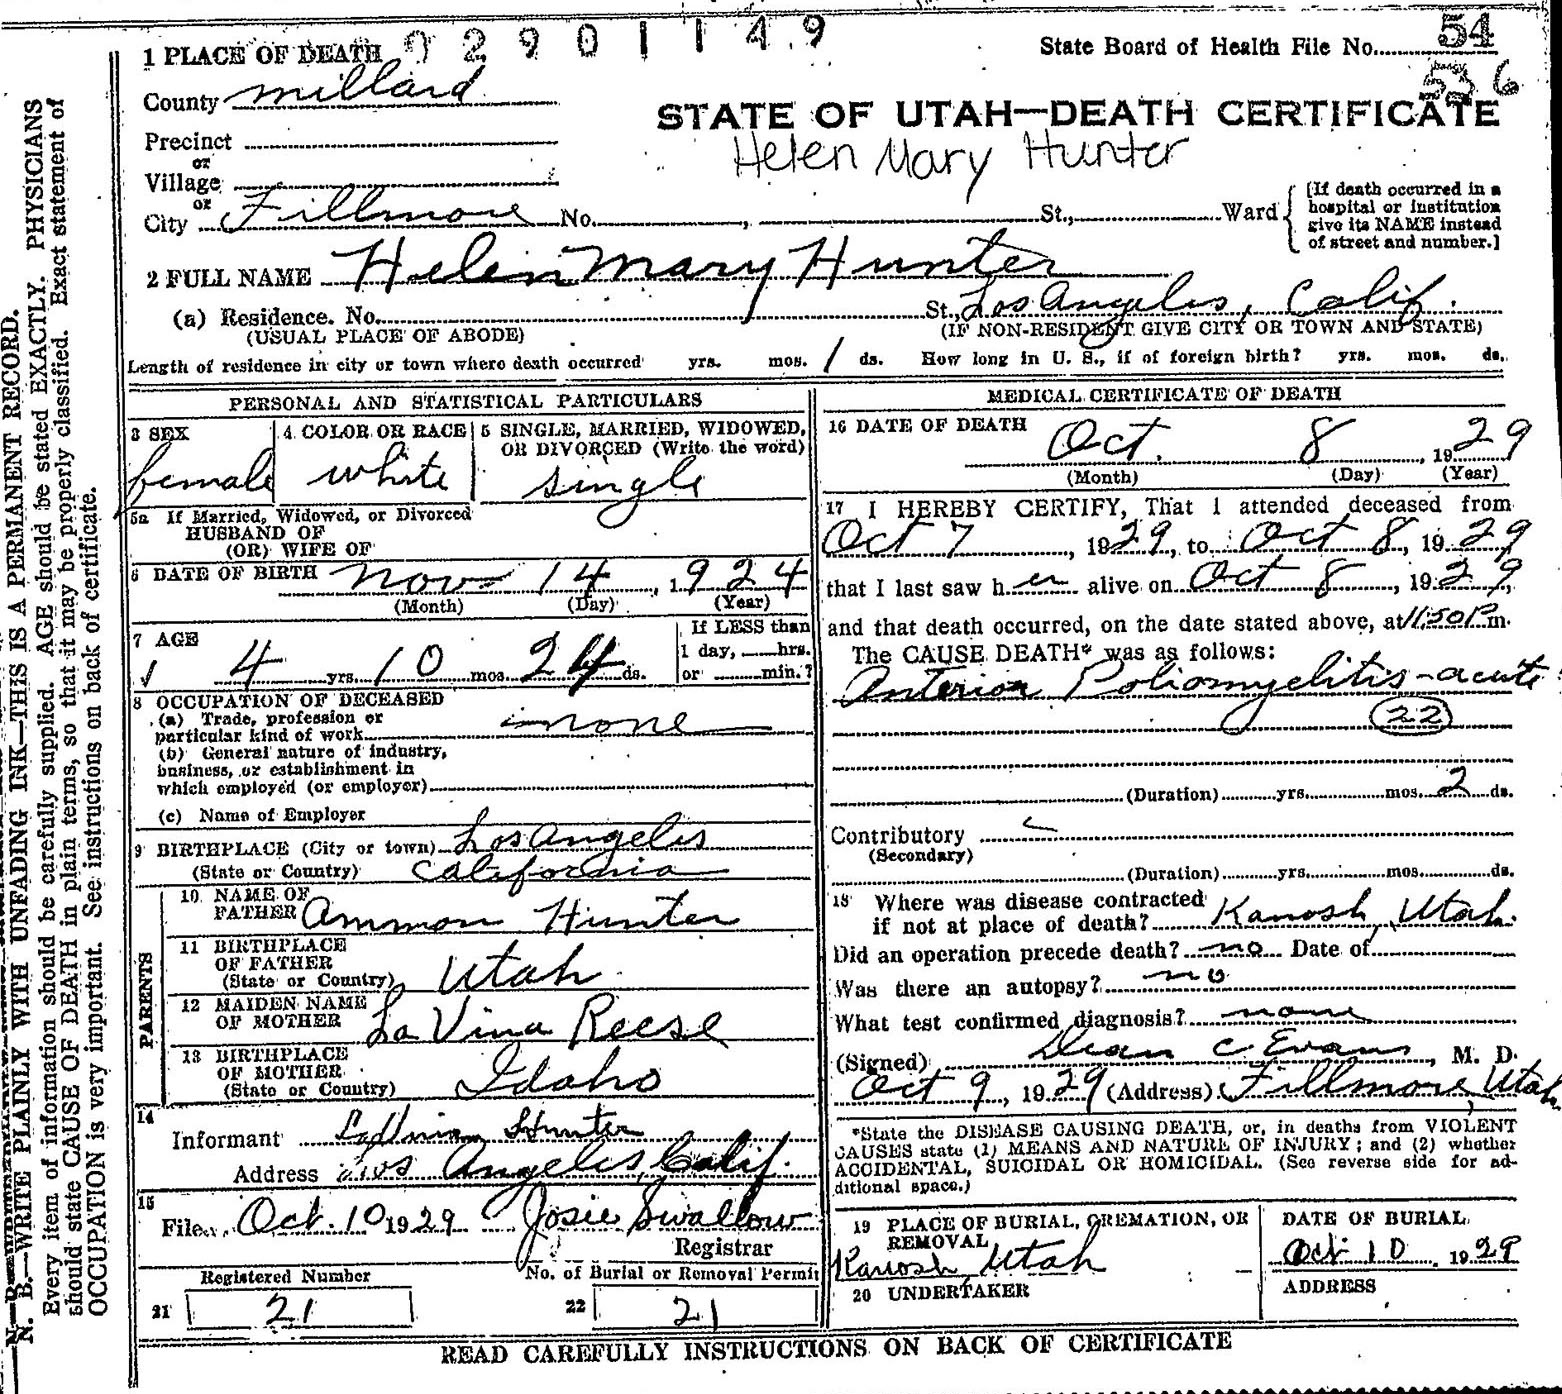 02901149
State Board of Health File No. 54
536
1 PLACE OF DEATH
County Millard
STATE OF UTAH—DEATH CERTIFICATE
Helen Mary Hunter
Precinct
or
Village
or
City Fillmore No. , St., Ward
[If death occurred in a
hospital or institution
give its NAME instead
of street and number.]
2 FULL NAME Helen Mary Hunter
(a) Residence. No. St., Los Angeles, Calif.
(USUAL PLACE OF ABODE) (IF NON-RESIDENT GIVE CITY OR TOWN AND STATE)
Length of residence in city or town where death occurred yrs. mos. 1 ds. How long in U. S., if of foreign birth? yrs. mos. ds.
PERSONAL AND STATISTICAL PARTICULARS
3 SEX
female
4 COLOR OR RACE
white
5 SINGLE, MARRIED, WIDOWED,
OR DIVORCED (Write the word)
single
5a If Married, Widowed, or Divorced
HUSBAND OF
(OR) WIFE OF
6 DATE OF BIRTH Nov 14, 1924
(Month) (Day) (Year)
7 AGE
4 yrs. 10 mos. 24 ds.
If LESS than
1 day, ___hrs.
or ___min.?
8 OCCUPATION OF DECEASED
(a) Trade, profession or
particular kind of work none
(b) General nature of industry,
business, or establishment in
which employed (or employer)
(c) Name of Employer
9 BIRTHPLACE (City or town) Los Angeles
(State or Country) California
PARENTS
10 NAME OF
FATHER Ammon Hunter
11 BIRTHPLACE
OF FATHER
(State or Country) Utah
12 MAIDEN NAME
OF MOTHER La Vina Reese
13 BIRTHPLACE
OF MOTHER
(State or Country) Idaho
14
Informant LaVina Hunter
Address Los Angeles, Calif.
15
File Oct. 10 1929 Josie Swallow
Registrar
Registered Number
21 21
No. of Burial or Removal Permit
22 21
MEDICAL CERTIFICATE OF DEATH
16 DATE OF DEATH
Oct. 8, 1929
(Month) (Day) (Year)
17 I HEREBY CERTIFY, That I attended deceased from
Oct 7, 1929, to Oct 8, 1929
that I last saw her alive on Oct 8, 1929,
and that death occurred, on the date stated above, at 11:50 P m.
The CAUSE DEATH* was as follows:
Anterior Poliomyelitis - acute
22
(Duration) yrs. mos. 2 ds.
Contributory
(Secondary)
(Duration) yrs. mos. ds.
18 Where was disease contracted
if not at place of death? Kanosh, Utah.
Did an operation precede death? no Date of
Was there an autopsy? no
What test confirmed diagnosis? none
(Signed) Dean C Evans, M. D.
Oct 9, 1929 (Address) Fillmore, Utah
*State the DISEASE CAUSING DEATH, or, in deaths from VIOLENT
CAUSES state (1) MEANS AND NATURE OF INJURY; and (2) whether
ACCIDENTAL, SUICIDAL OR HOMICIDAL. (See reverse side for ad-
ditional space.)
19 PLACE OF BURIAL, CREMATION, OR
REMOVAL
Kanosh, Utah
DATE OF BURIAL
Oct 10, 1929
20 UNDERTAKER
ADDRESS
READ CAREFULLY INSTRUCTIONS ON BACK OF CERTIFICATE
N. B.—WRITE PLAINLY WITH UNFADING INK—THIS IS A PERMANENT RECORD.
Every item of information should be carefully supplied. AGE should be stated EXACTLY. PHYSICIANS
should state CAUSE OF DEATH in plain terms, so that it may be properly classified. Exact statement of
OCCUPATION is very important. See instructions on back of certificate.